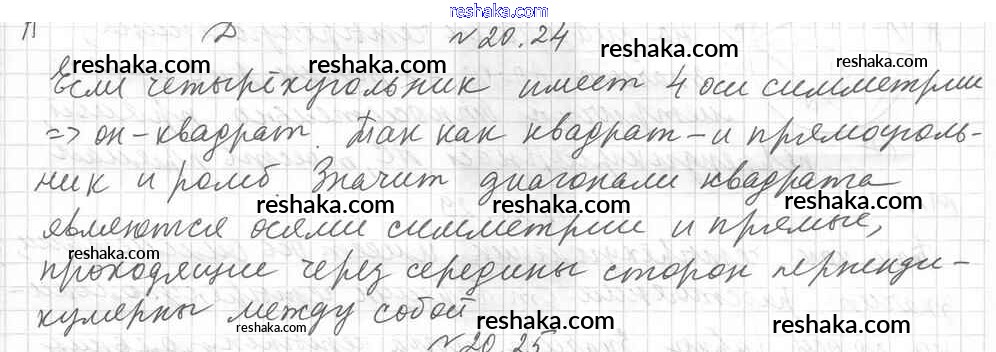 reshaka.com
П Д №20.24
reshaka.com
reshaka.com reshaka.com
Если четырёхугольник имеет 4 оси симметрии
reshaka.com reshaka.com
=> он - квадрат. Так как квадрат - и прямоуголь-
ник и ромб. Значит диагонали квадрата
reshaka.com reshaka.com reshaka.com
являются осями симметрии и прямые,
reshaka.com
проходящие через середины сторон перпенди-
кулярны между собой
reshaka.com reshaka.com reshaka.com
№20.25